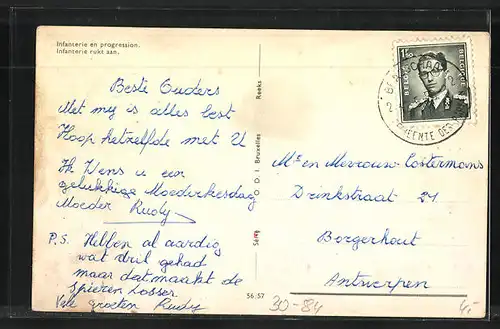 Infanterie en progression.
Infanterie rukt aan.
Beste Ouders
Met mij is alles best
Hoop hetzelfde met U
Ik Wens u een
gelukkige Moederkesdag
Moeder Rudy
P.S. Hebben al aardig
wat dril gehad
maar dat maakt de
spieren losser
Vele groeten Rudy
O D I. Bruxelles Reeks
56/57
BELGIE BELGIQUE
1.50
Mr en Mevrouw Costermans
Drinkstraat 21
Borgerhout
Antwerpen
30-84
4,-